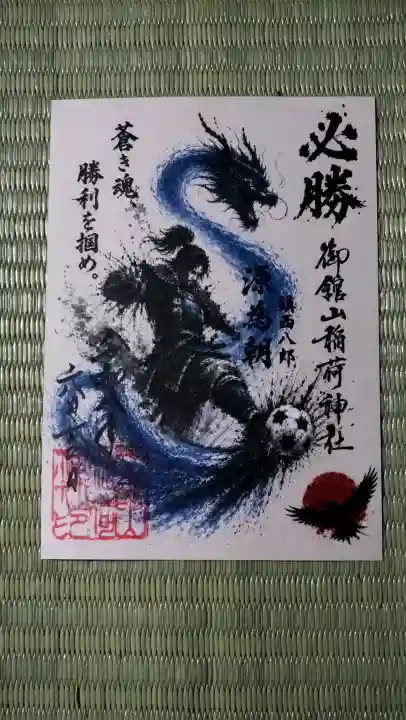 必勝
御館山稲荷神社
鎮西八郎
源為朝
蒼き魂
勝利を掴め。